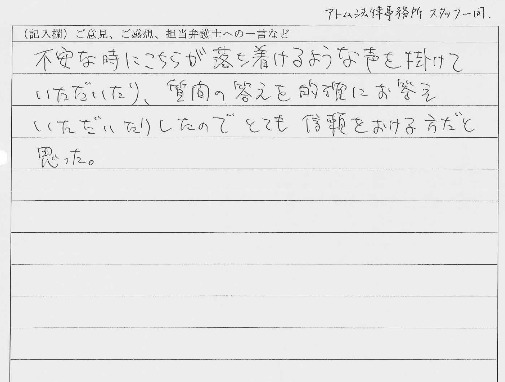 アトム法律事務所 スタッフ一同.
(記入欄) ご意見、ご感想、担当弁護士への一言など
不安な時にこちらが落ち着けるような声を掛けて
いただいたり、質問の答えを的確にお答え
いただいたりしたのでとても信頼をおける方だと
思った。